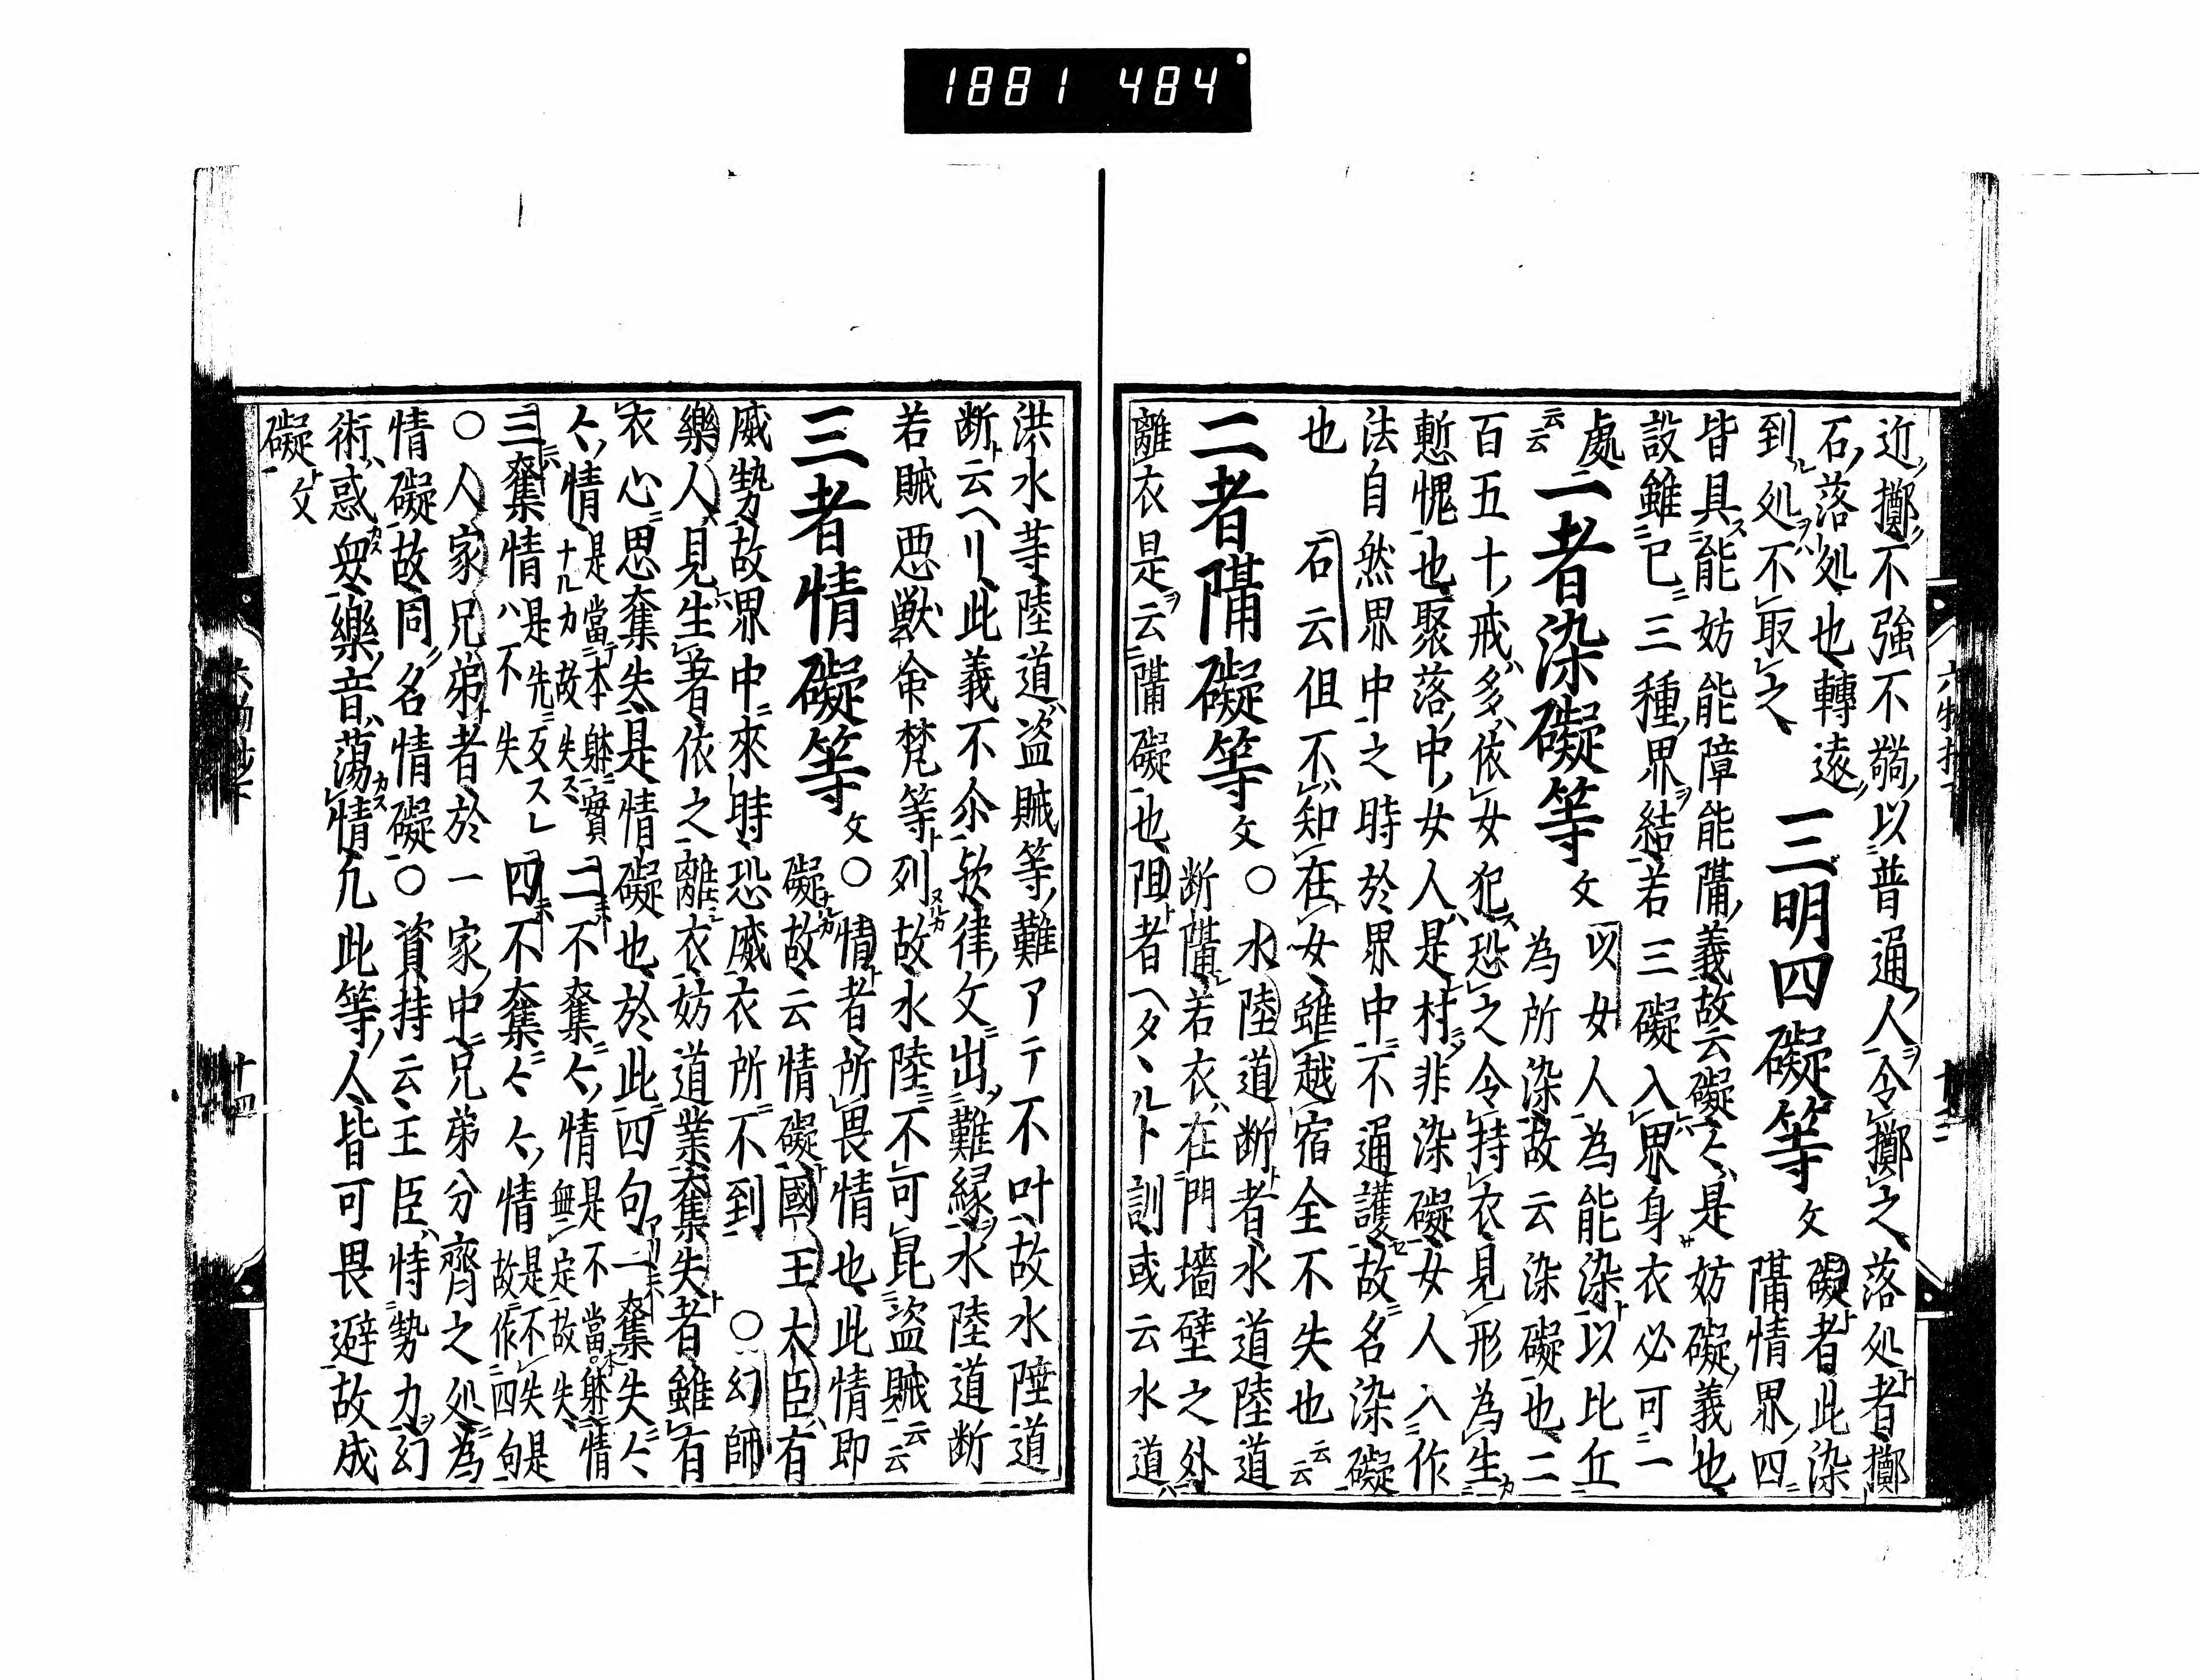 1881 484
近擲不強不鵨以普通人令擲之落処者擲
石落処也轉遠 三明四礙等文 礙者此染
到処不取之 隔情界四
皆具能妨能障能隔義故云礙々是妨礙義也
設雖已三種界結若三礙入界身衣必可一
處 二者染礙等文 以女人為能染以比丘
云云 為所染故云染礙也二
百五十戒多依女犯恐之令持衣見形為生
慙愧也聚落中女人是村非染礙女人入作
法自然界中之時於界中不通護故名染礙
也 石云但不知在女雖越宿全不失也云云
二者隔礙等文○水陸道断者水道陸道
断隔若衣在門墻壁之外
離衣是云隔礙也阻者ヘタヽルト訓或云水道
洪水等陸道盗賊等難アテ不叶故水陸道
断云ヘリ此義不尒欤律文出難縁水陸道断
若賊悪獣命梵等列故水陸不可昆盗賊云云
三者情礙等文○情者所畏情也此情即
礙故云情礙國王大臣有
威勢故界中來時恐威衣所不到 ○幻師
樂人見生著依之離衣妨道業奪失者雖有
衣心思奪失是情礙也於此四句一奪失々
々情是當本躰實情ナルカ故失 二不奪々情是不當本躰情無定故失
三奪情是先反スレハ不失 四不奪々々情是不失是故作四句
○人家兄弟者於一家中兄弟分齊之処為
情礙故同名情礙○資持云王臣恃勢力幻
術惑衆樂音蕩情凢此等人皆可畏避故成
礙文
十四